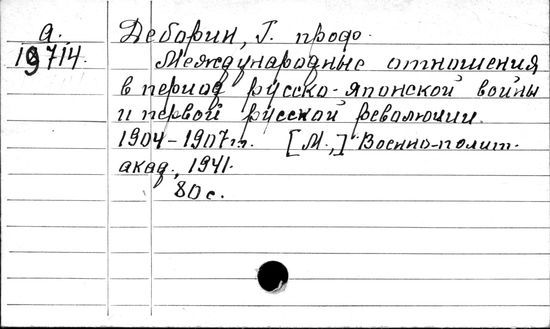 а.
19714.
Деборин, Г. проф.
Международные отношения
в период русско-японской войны
и первой русской революции.
1904-1907 гг. [М.,] Военно-полит.
акад., 1941.
80 с.